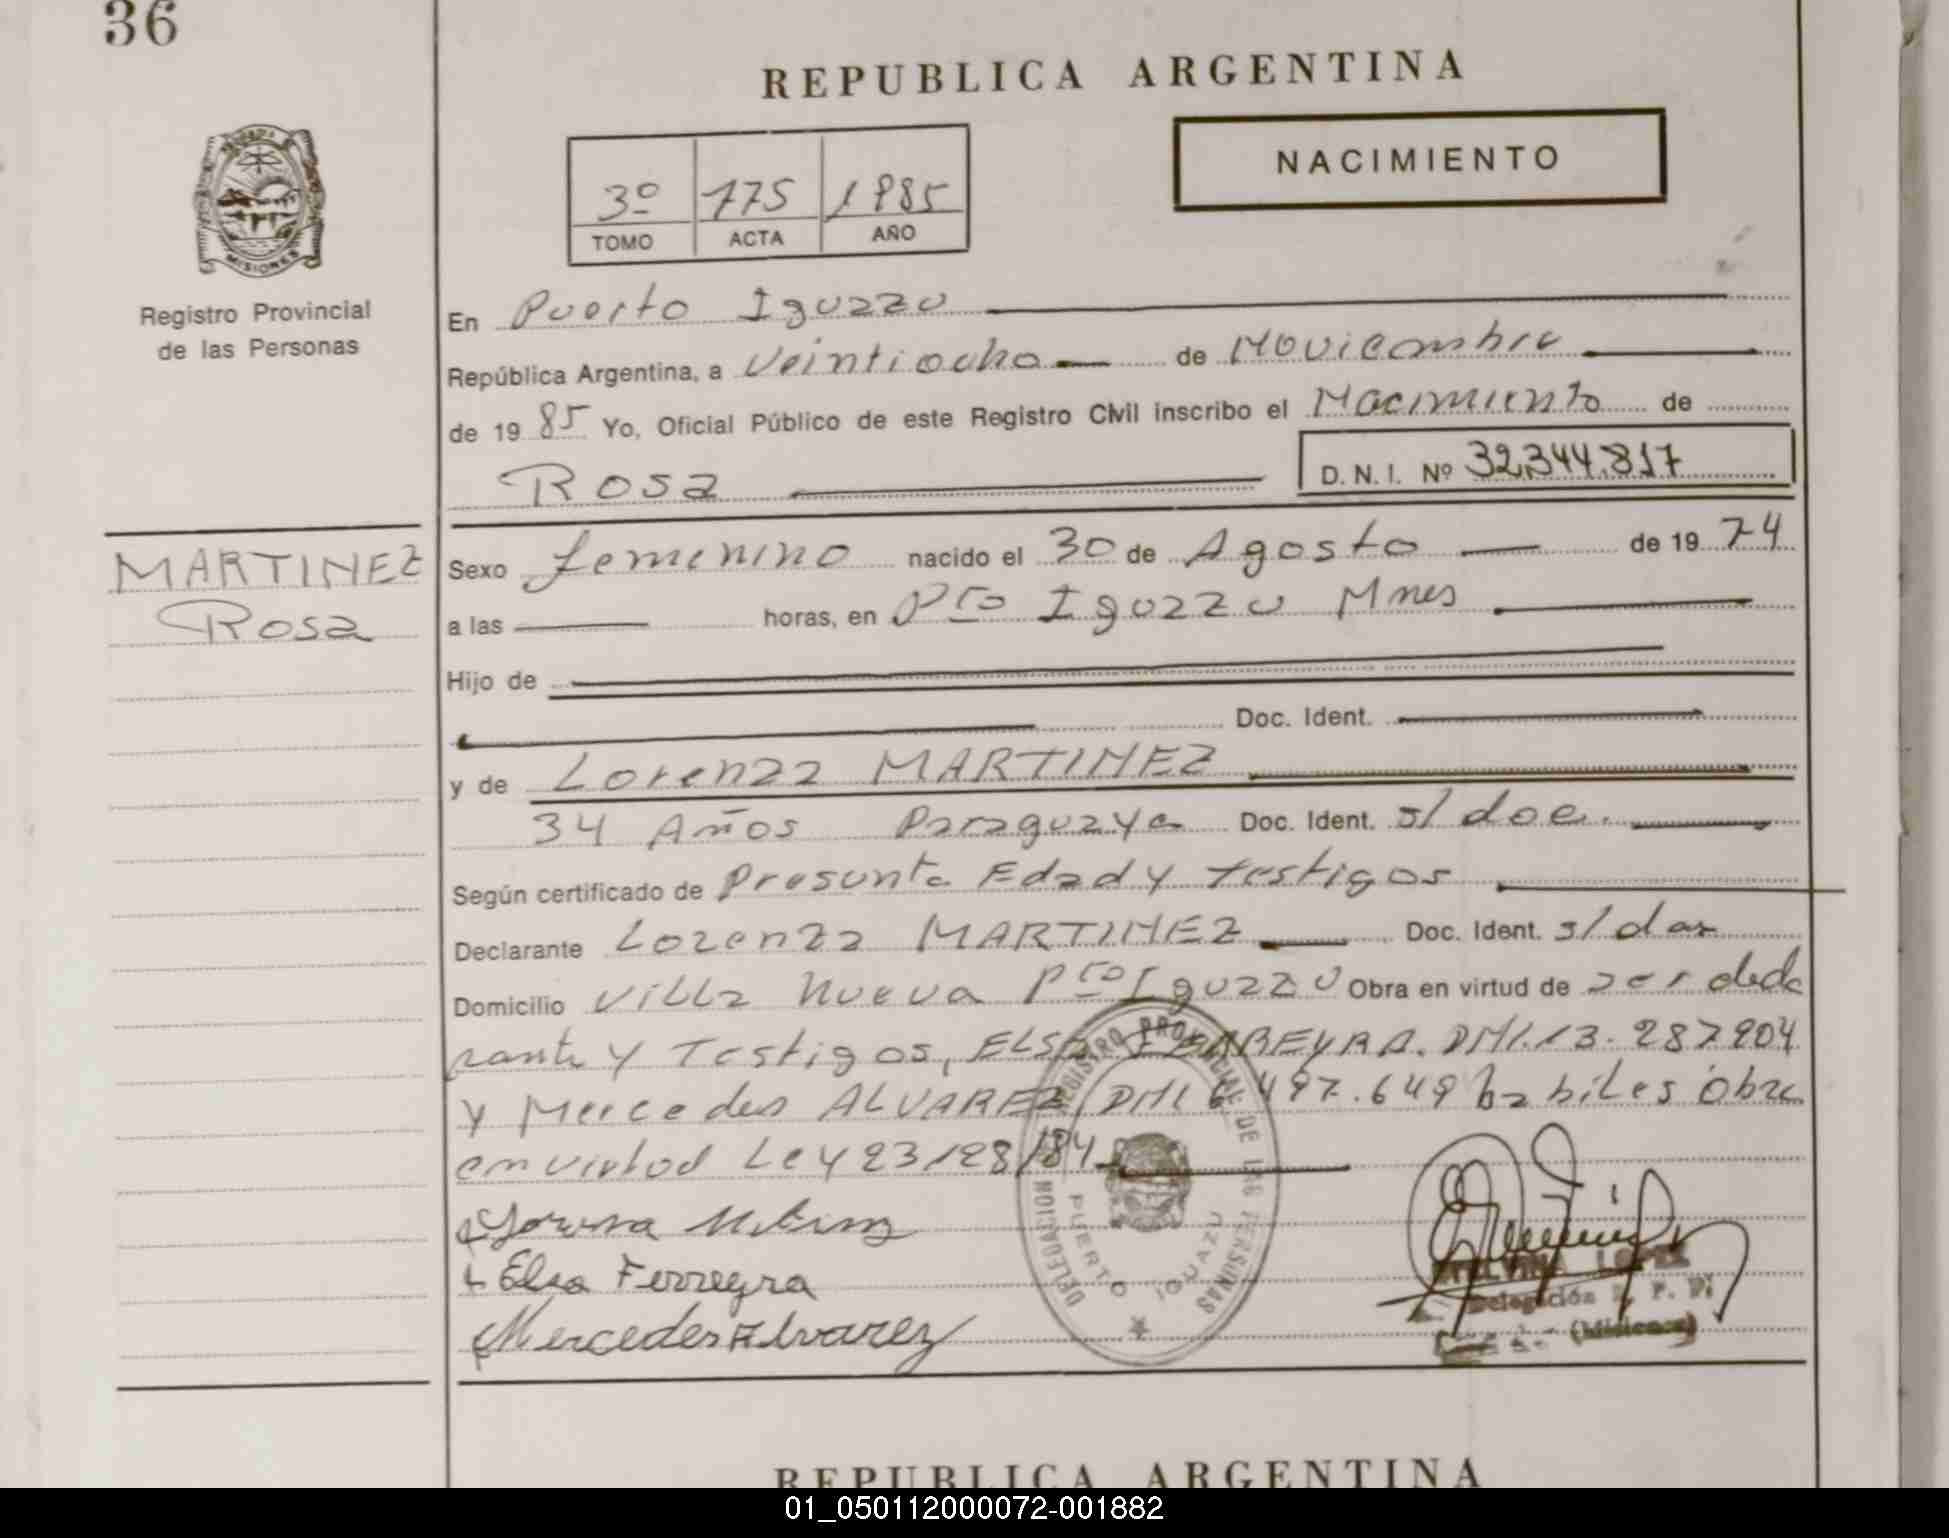 36
REPUBLICA ARGENTINA
NACIMIENTO
3º 775 1985
TOMO ACTA AÑO
MISIONES
Registro Provincial
de las Personas
En Puerto Iguazu
República Argentina, a Veintiocho de Noviembre
de 19 85 Yo, Oficial Público de este Registro Civil inscribo el Nacimiento de
Rosa
D. N. I. Nº 32.344.817
MARTINEZ
Rosa
Sexo femenino nacido el 30 de Agosto de 19 74
a las horas, en Pto Iguazu Mnes
Hijo de
Doc. Ident.
y de Lorenza MARTINEZ
34 Años Paraguaya Doc. Ident. s/doc.
Según certificado de Presunta Edad y testigos
Declarante Lorenza MARTINEZ Doc. Ident. s/doc
Domicilio Villa Nueva Pto Iguazu Obra en virtud de ser decla
rante y Testigos, ELSA FERREYRA. DNI.13.287.904
y Mercedes ALVAREZ, DNI 6.497.649 habiles obra
en virtud Ley 23128/84
Elsa Ferreyra
Mercedes Alvarez
REGISTRO PROVINCIAL DE LAS PERSONAS
DELEGACION
PUERTO IGUAZU
LOPEZ
Delegación
(Misiones)
REPUBLICA ARGENTINA
01_050112000072-001882